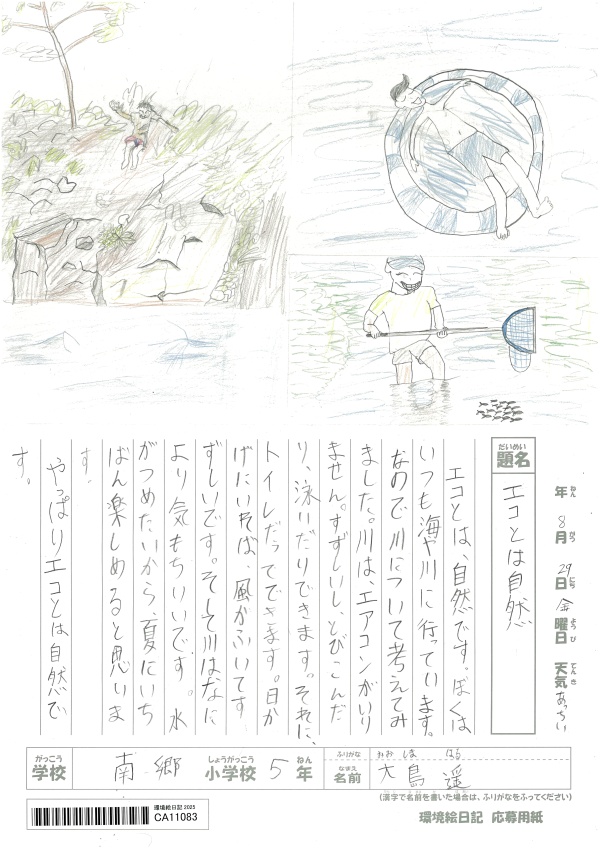 年 8月 29日 金曜日 天気 あっちい
ねん がつ にち ようび てんき
だいめい
題名 エコとは自然
エコとは、自然です。ぼくは
いつも海や川に行っています。
なので川について考えてみ
ました。川は、エアコンがいり
ません。すずしいし、とびこんだ
り、泳いだりできます。それに、
トイレだってできます。日か
げにいれば、風がふいてす
ずしいです。そして川はなに
より気もちいいです。水
がつめたいから、夏にいち
ばん楽しめると思いま
す。
やっぱりエコとは自然で
す。
がっこう しょうがっこう ねん
学校 南郷 小学校 5年
ふりがな おおしま はる
なまえ
名前 大島 遥
(漢字で名前を書いた場合は、ふりがなをふってください)
環境絵日記 2025
CA11083
環境絵日記 応募用紙